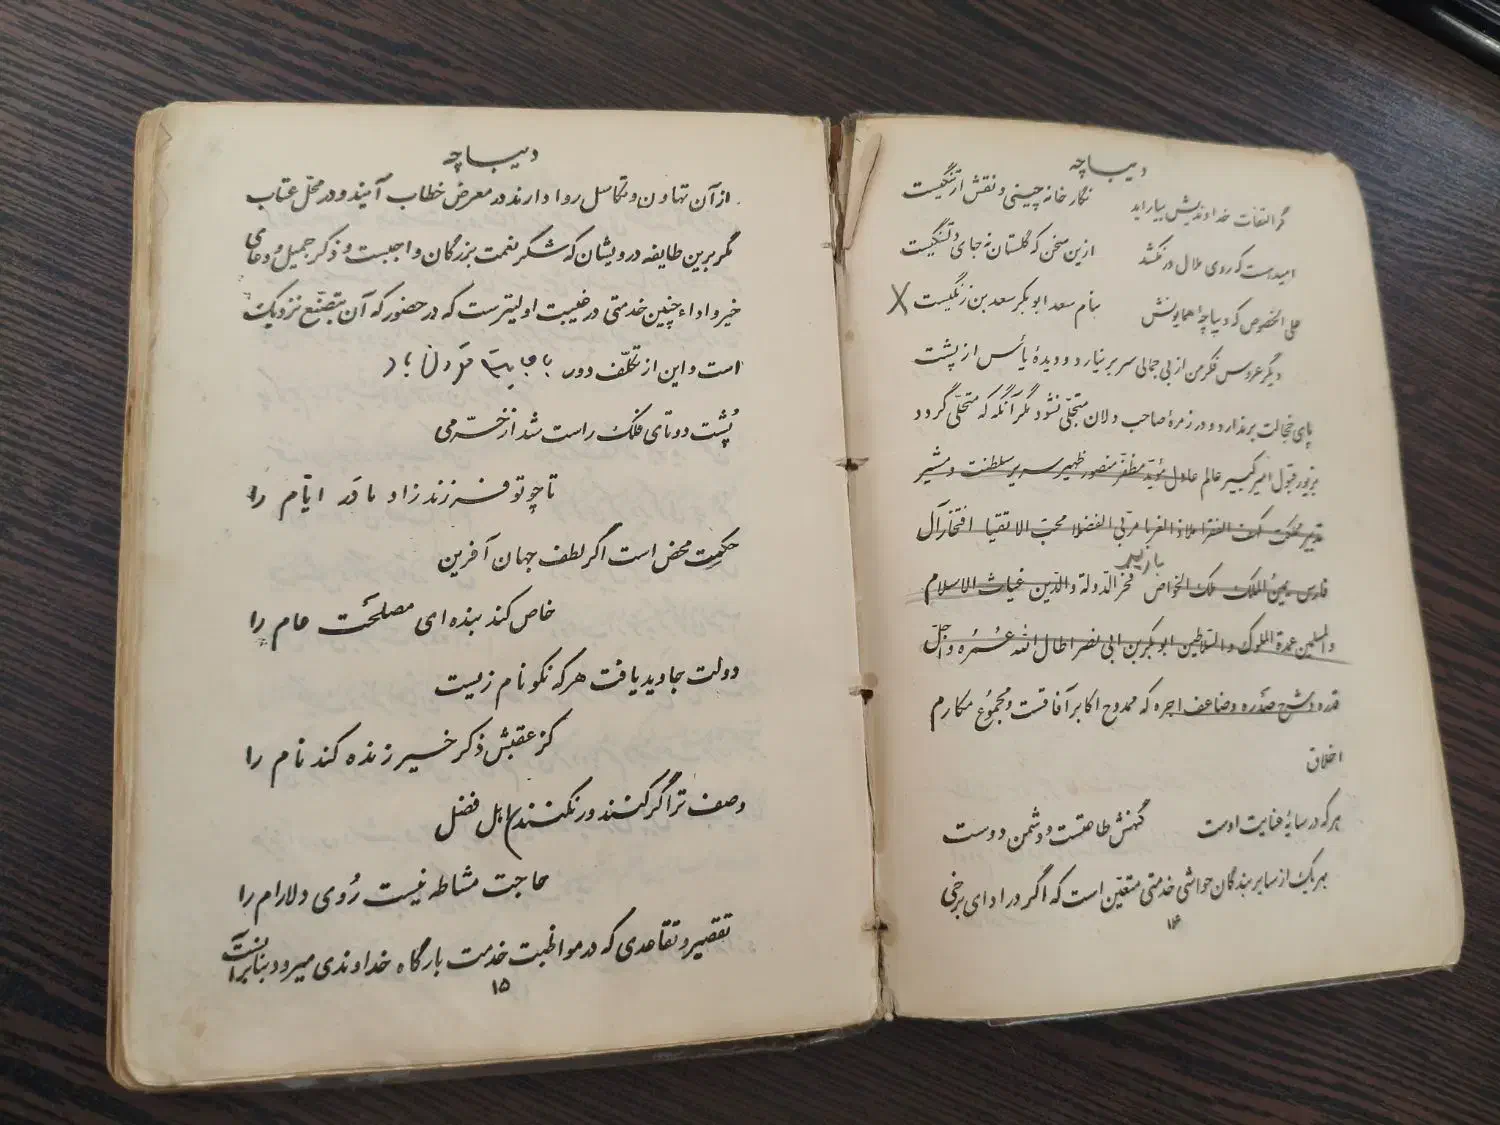 دیباچه
گر التفات خداوندیش بیاراید نگارخانه چینی و نقش ارتنگیست
امیدست که روی ملال در نکشد ازین سخن که گلستان نه جای دلتنگیست
علی الخصوص که دیباچهٔ همایونش بنام سعد ابوبکر سعد بن زنگیست X
دیگر عروس فکر من از بی جمالی سر برنیارد و دیدهٔ یأس از پشت
پای خجالت برندارد و در زمرهٔ صاحب دلان متجلّی نشود مگر آنگه که متحلّی گردد
بزیور قبول امیر کبیر عالم عادل مؤیّد مظفّر منصور ظهیر سریر سلطنت و مشیر
تدبیر مملکت کهف الفقرا ملاذ الغربا مربّی الفضلا محبّ الاتقیا افتخار آل
فارس یمین الملک ملک الخواص فخر الدّولة والدّین غیاث الاسلام
والمسلمین عمدة الملوک والسّلاطین ابوبکر بن ابی نصر اطال الله عُمُرَه و اجلّ
قدره و شرح صدره و ضاعف اجره که ممدوح اکابر آفاقست و مجموع مکارم
اخلاق
هر که در سایهٔ عنایت اوست گنهش طاعتست و دشمن دوست
بهر یک از سایر بندگان حواشی خدمتی متعیّن است که اگر در ادای برخی
۱۴
دیباچه
از آن تهاون و تکاسل روا دارند در معرض خطاب آیند و در محلّ عتاب
مگر برین طایفه درویشان که شکر نعمت بزرگان واجبست و ذکر جمیل و دعای
خیر و اداء چنین خدمتی در غیبت اولیترست که در حضور که آن بتصنّع نزدیک
است و این از تکلّف دور
پُشت دوتای فلک راست شد از خرّمی
تا چو تو فرزند زاد مادَر ایّام را
حکمت محض است اگر لطف جهان آفرین
خاص کند بنده ای مصلحَت عام را
دولت جاوید یافت هر که نکونام زیست
کز عقبش ذکر خیر زنده کند نام را
وصف ترا گر کنند ور نکنند اهل فضل
حاجت مشاطه نیست رُوی دلارام را
تقصیر و تقاعدی که در مواظبت خدمت بارگاه خداوندی میرود بنابرآنست
۱۵